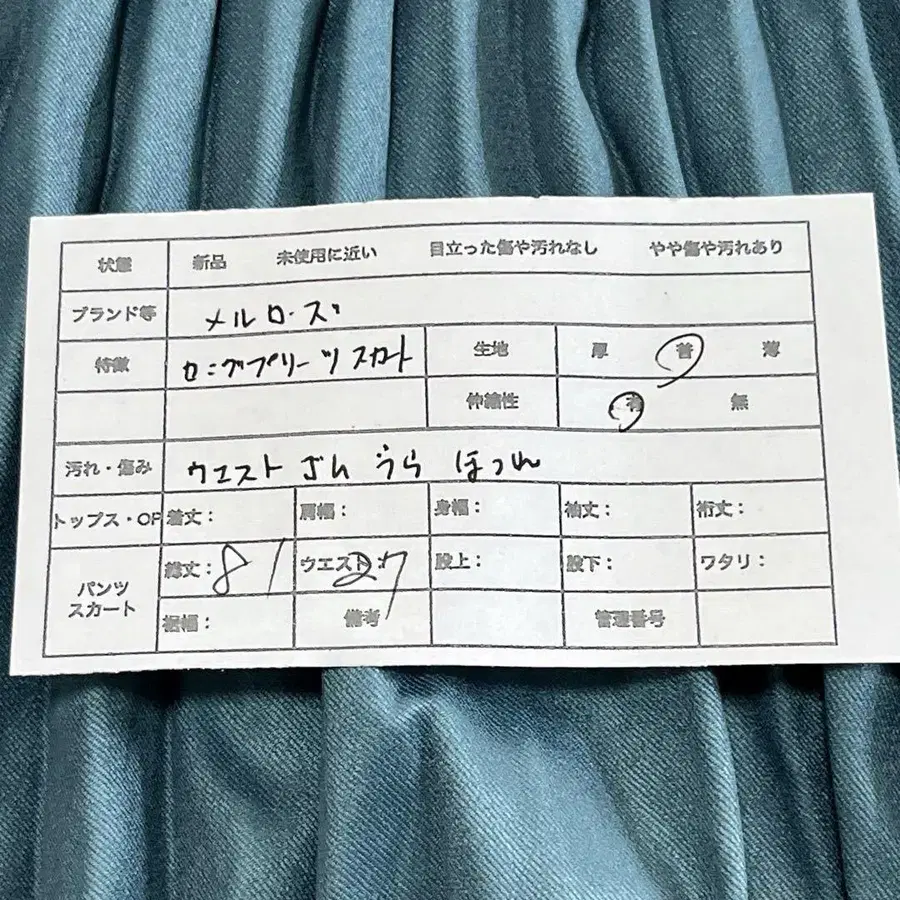 状態 新品 未使用に近い 目立った傷や汚れなし やや傷や汚れあり
ブランド等 メルローズ
特徴 ロングプリーツスカート 生地 厚 普 薄
伸縮性 有 無
汚れ・傷み ウエストゴムうらほつれ
トップス・OP 着丈: 肩幅: 身幅: 袖丈: 裄丈:
パンツ スカート 総丈:81 ウエスト:27 股上: 股下: ワタリ:
裾幅: 備考 管理番号